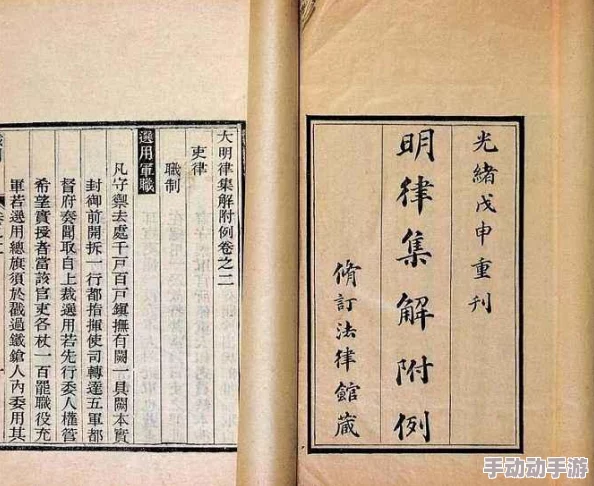 光緒戊申重刊
明律集解附例
脩訂法律館藏
大明律集解附例卷之二
吏律
職制
選用軍職
凡守禦去處千戶百戶鎮撫有闕一具闕本實
封御前開拆一行都指揮使司轉達五軍都
督府奏聞取自上裁選用若先行委人權管
希望實授者當該官吏各杖一百罷職役充
軍若選用總旗須於戳過鐵鎗人內委用其
手动动手游